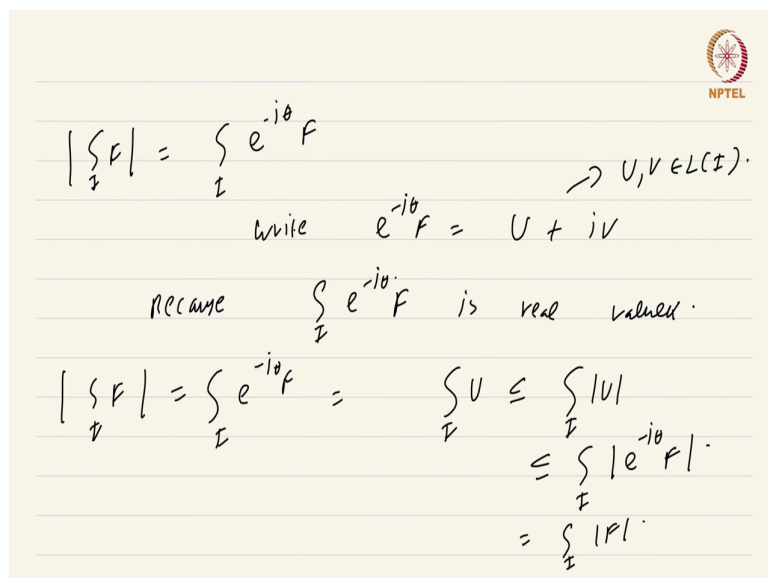 NPTEL
|∫_I F| = ∫_I e^{-iθ} F
→ U, V ∈ L(I).
write e^{-iθ} F = U + iV
Because ∫_I e^{-iθ} F is real valued.
|∫_I F| = ∫_I e^{-iθ} F = ∫_I U ≤ ∫_I |U|
≤ ∫_I |e^{-iθ} F|.
= ∫_I |F|.